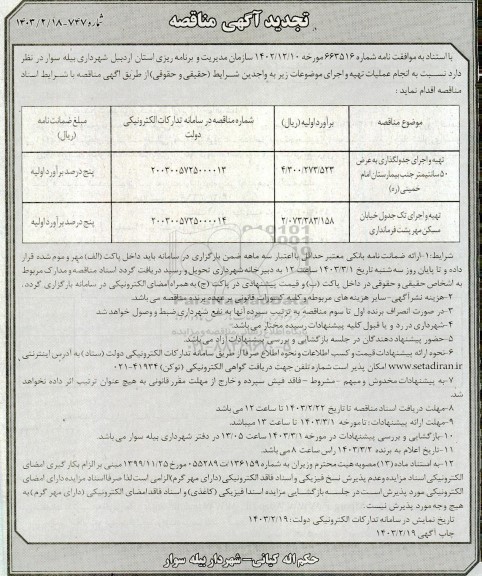 تجدید آگهی مناقصه
شماره ۷۴۷-۱۴۰۳/۲/۱۸
با استناد به موافقت نامه شماره ۶۶۳۵۱۶ مورخه ۱۴۰۲/۱۲/۱۰ سازمان مدیریت و برنامه ریزی استان اردبیل شهرداری بیله سوار در نظر
دارد نسبت به انجام عملیات تهیه و اجرای موضوعات زیر به واجدین شرایط (حقیقی و حقوقی) از طریق آگهی مناقصه با شرایط اسناد
مناقصه اقدام نماید :
موضوع مناقصه
برآورد اولیه (ریال)
شماره مناقصه در سامانه تدارکات الکترونیکی دولت
مبلغ ضمانت نامه (ریال)
تهیه و اجرای جدولگذاری به عرض ۵۰ سانتیمتر جنب بیمارستان امام خمینی (ره)
۴/۳۰۰/۲۷۳/۵۲۳
۲۰۰۳۰۰۵۷۲۵۰۰۰۰۱۳
پنج درصد برآورد اولیه
تهیه و اجرای تک جدول خیابان مسکن مهر پشت فرمانداری
۲/۰۷۳/۳۸۳/۱۵۸
۲۰۰۳۰۰۵۷۲۵۰۰۰۰۱۴
پنج درصد برآورد اولیه
شرایط: ۱-ارائه ضمانت نامه بانکی معتبر حداقل با اعتبار سه ماهه ضمن بارگزاری در سامانه باید داخل پاکت (الف) مهر و موم شده قرار
داده و تا پایان روز سه شنبه تاریخ ۱۴۰۳/۳/۱ ساعت ۱۲ به دبیرخانه شهرداری تحویل و رسید دریافت گردد اسناد مناقصه و مدارک مربوط
به اشخاص حقیقی و حقوقی در داخل پاکت (ب) و قیمت پیشنهادی در پاکت (ج) به همراه امضای الکترونیکی در سامانه بارگزاری گردد.
۲-هزینه نشر آگهی- سایر هزینه های مربوطه و کلیه کسورات قانونی بر عهده برنده مناقصه می باشد.
۳-در صورت انصراف برنده اول تا سوم مناقصه به ترتیب سپرده آنها به نفع شهرداری ضبط و وصول خواهد شد
۴-شهرداری در رد و یا قبول کلیه پیشنهادات رسیده مختار می باشد.
۵-حضور پیشنهاد دهندگان در جلسه بازگشایی و بررسی پیشنهادات آزاد می باشد.
۶-نحوه ارائه پیشنهادات قیمت و کسب اطلاعات و نحوه اطلاع صرفا از طریق سامانه تدارکات الکترونیکی دولت (ستاد) به آدرس اینترنتی
www.setadiran.ir امکان پذیر است شماره تلفن جهت دریافت گواهی الکترونیکی (توکن) ۴۱۹۳۴-۰۲۱
۷-به پیشنهادات مخدوش و مبهم - مشروط - فاقد فیش سپرده و خارج از مهلت مقرر قانونی به هیچ عنوان ترتیب اثر داده نخواهد
شد.
۸-مهلت دریافت اسناد مناقصه تا تاریخ ۱۴۰۳/۲/۲۲ تا ساعت ۱۲ می باشد
۹-مهلت ارائه پیشنهادات : تا مورخه ۱۴۰۳/۳/۱ تا ساعت ۱۳ میباشد.
۱۰-بازگشایی و بررسی پیشنهادات در مورخه ۱۴۰۳/۳/۱ ساعت ۱۳/۰۵ در دفتر شهرداری بیله سوار می باشد.
۱۱-تاریخ اعلام به برنده ۱۴۰۳/۳/۲ راس ساعت ۸ می باشد.
۱۲-به استناد ماده (۱۳) مصوبه هیت محترم وزیران به شماره ۱۳۶۱۵۹/ت ۵۵۲۸۹ه مورخ ۱۳۹۹/۱۱/۲۵ مبنی بر الزام بکارگیری امضای
الکترونیکی اسناد مزایده و عدم پذیرش نسخ فیزیکی و اسناد فاقد الکترونیکی (دارای مهر گرم) الزامی است لذا صرفا اسناد مزایده دارای امضای
الکترونیکی مورد پذیرش است در جلسه بازگشایی مزایده اسناد فیزیکی (کاغذی) و اسناد فاقد امضای الکترونیکی (دارای مهر گرم) به
هیچ وجه مورد پذیرش نیست.
تاریخ نمایش در سامانه تدارکات الکترونیکی دولت: ۱۴۰۳/۲/۱۹
چاپ آگهی ۱۴۰۳/۲/۱۹
حکم اله کیانی- شهردار بیله سوار